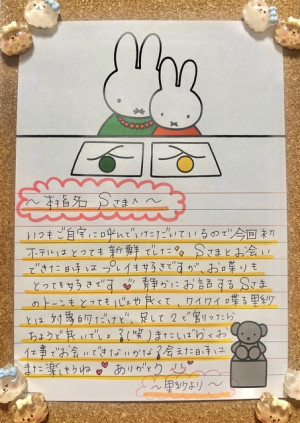 ～本指名 Sさまへ～
いつもご自宅に呼んでいただいているので今回初
ホテルはとっても新鮮でした Sさまとお会い
できた日はプレイも好きですが、お喋りも
とっても好きです 静かにお話するSさま
のトーンもとっても心地良くて、ワイワイ喋る里紗
とは対照的だけど、足して2で割ったら
ちょうど良いでしょ(笑)またしばらくお
仕事でお会いできないかな?会えた日は
また楽しもうね ありがとう
～里紗より～